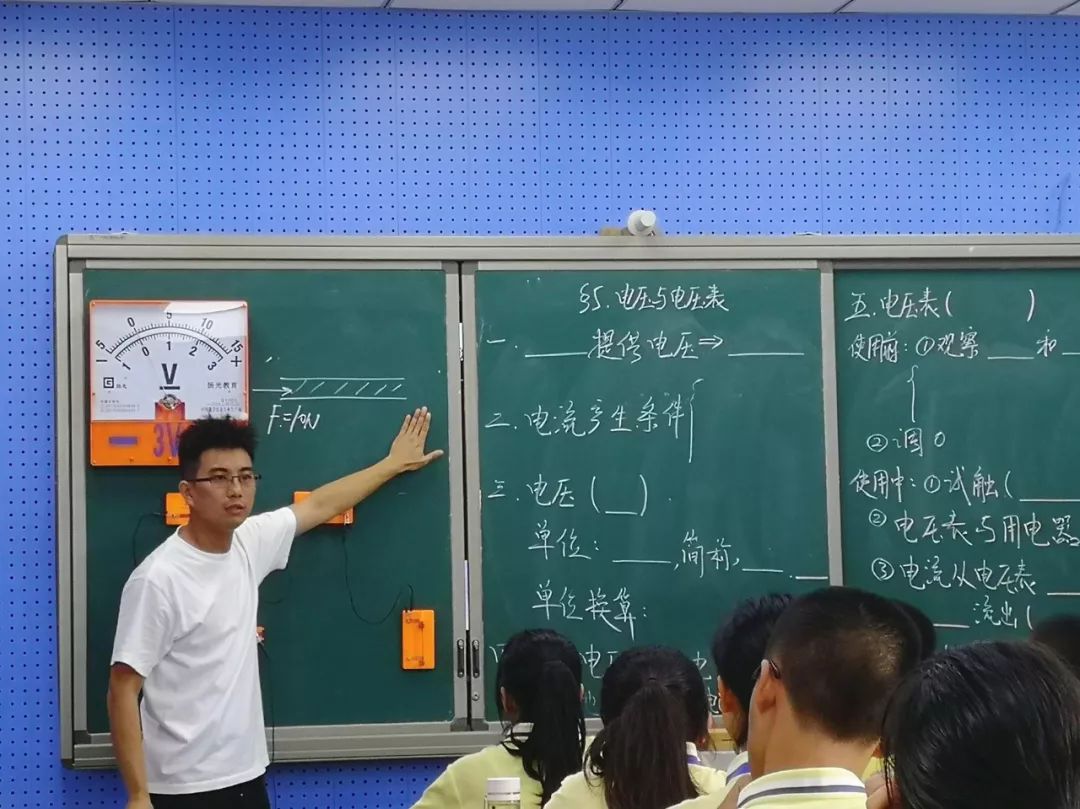 5 0 5 10 15
1 0 1 2 3
- V +
G 扬光教育
- 3V
F=10N
§5.电压与电压表
一.____提供电压⇒____
二.电流产生条件{
三.电压(__)
单位:____,简称,__.__
单位换算:
五.电压表( )
使用前:①观察___和_
{
②调0
使用中:①试触(____
②电压表与用电器
③电流从电压表_
__流出(